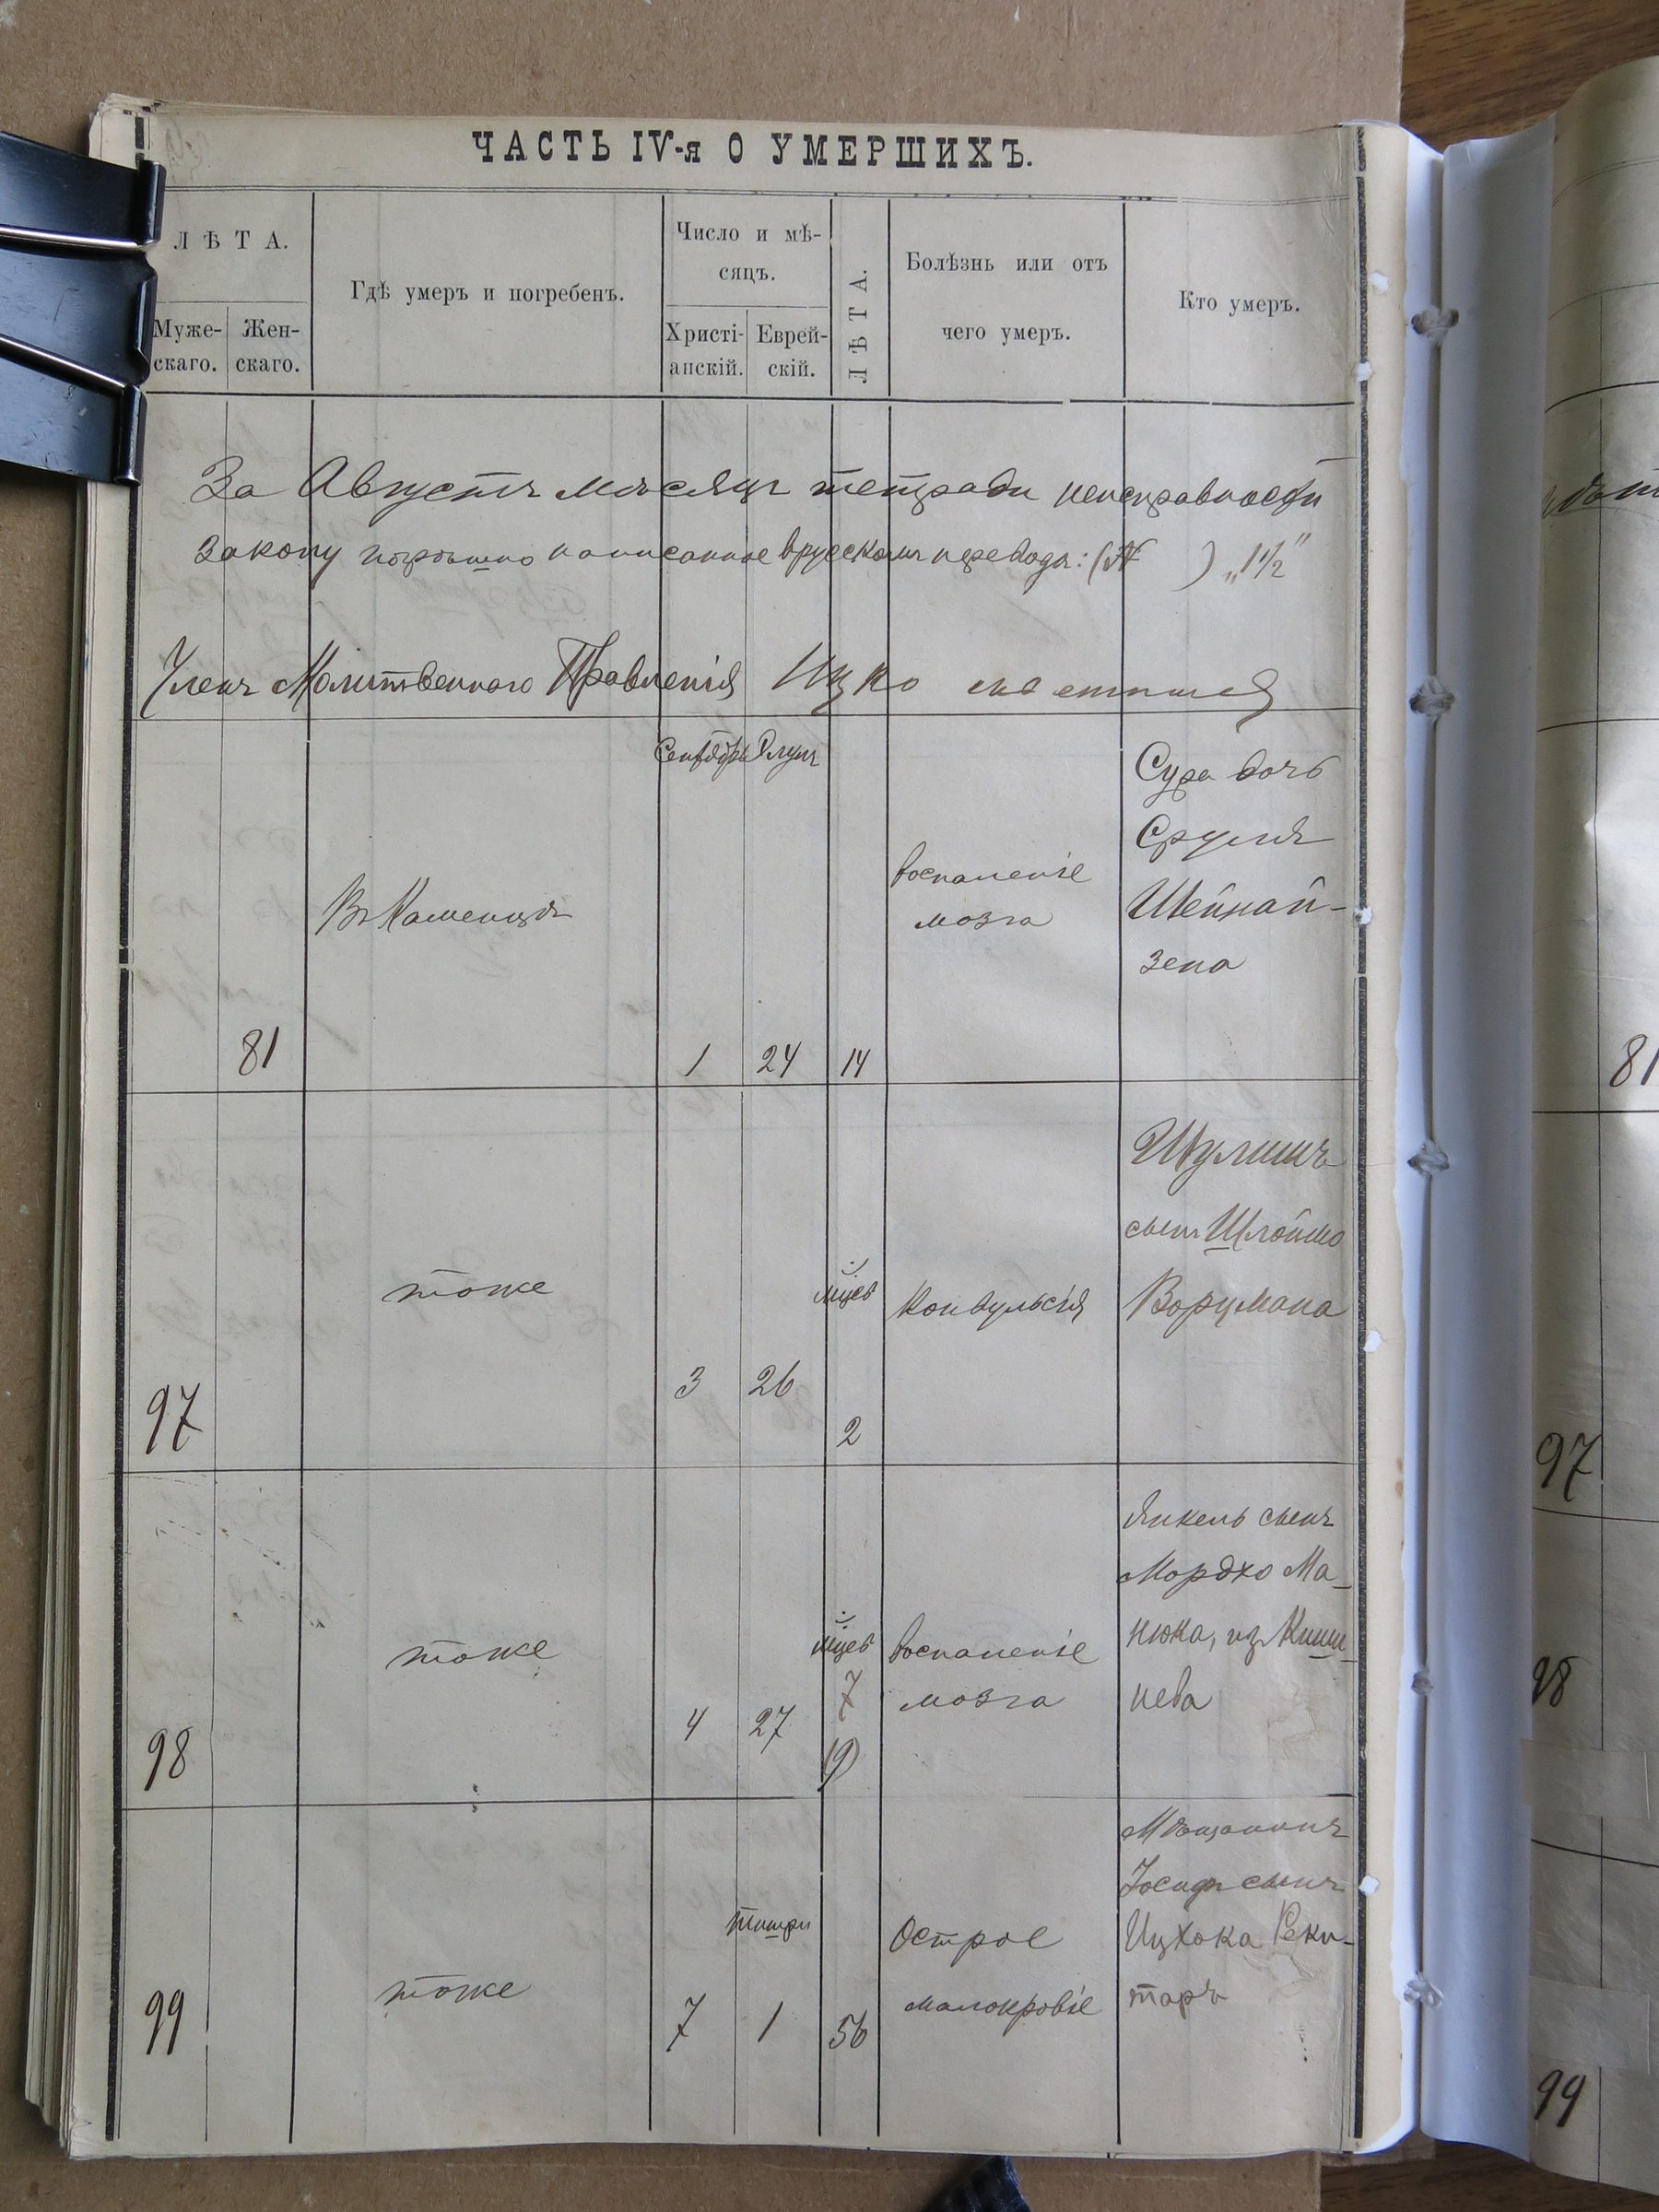 ЧАСТЬ IV-я О УМЕРШИХЪ.
ЛѢТА.
Муже-
скаго.
Жен-
скаго.
Гдѣ умеръ и погребенъ.
Число и мѣ-
сяцъ.
Христі-
анскій.
Еврей-
скій.
ЛѢТА.
Болѣзнь или отъ
чего умеръ.
Кто умеръ.
За Августъ мѣсяцъ тетради неисправности
закону написанное врусскомъ переводѣ: (№ ) „1½"
Членъ Молитвенного Правленія Ицко
Сентябрь Элулъ
81
Въ Каменцѣ
1
24
14
воспаленіе
мозга
Сура дочь
Сруля
Шейнай-
зена
97
тоже
3
26
м̃цев
2
Конвульсія
Шулимъ
сынъ Шлоймо
Ворцмана
98
тоже
4
27
м̃цев
7
(9)
воспаленіе
мозга
Янкель сынъ
Мордхо Ма-
нюка, из Киши-
нева
99
тоже
7
Тишри
1
56
Острое
малокровіе
Мѣщанинъ
Іосифъ сынъ
Ицхока Секи-
таръ
81
97
98
99